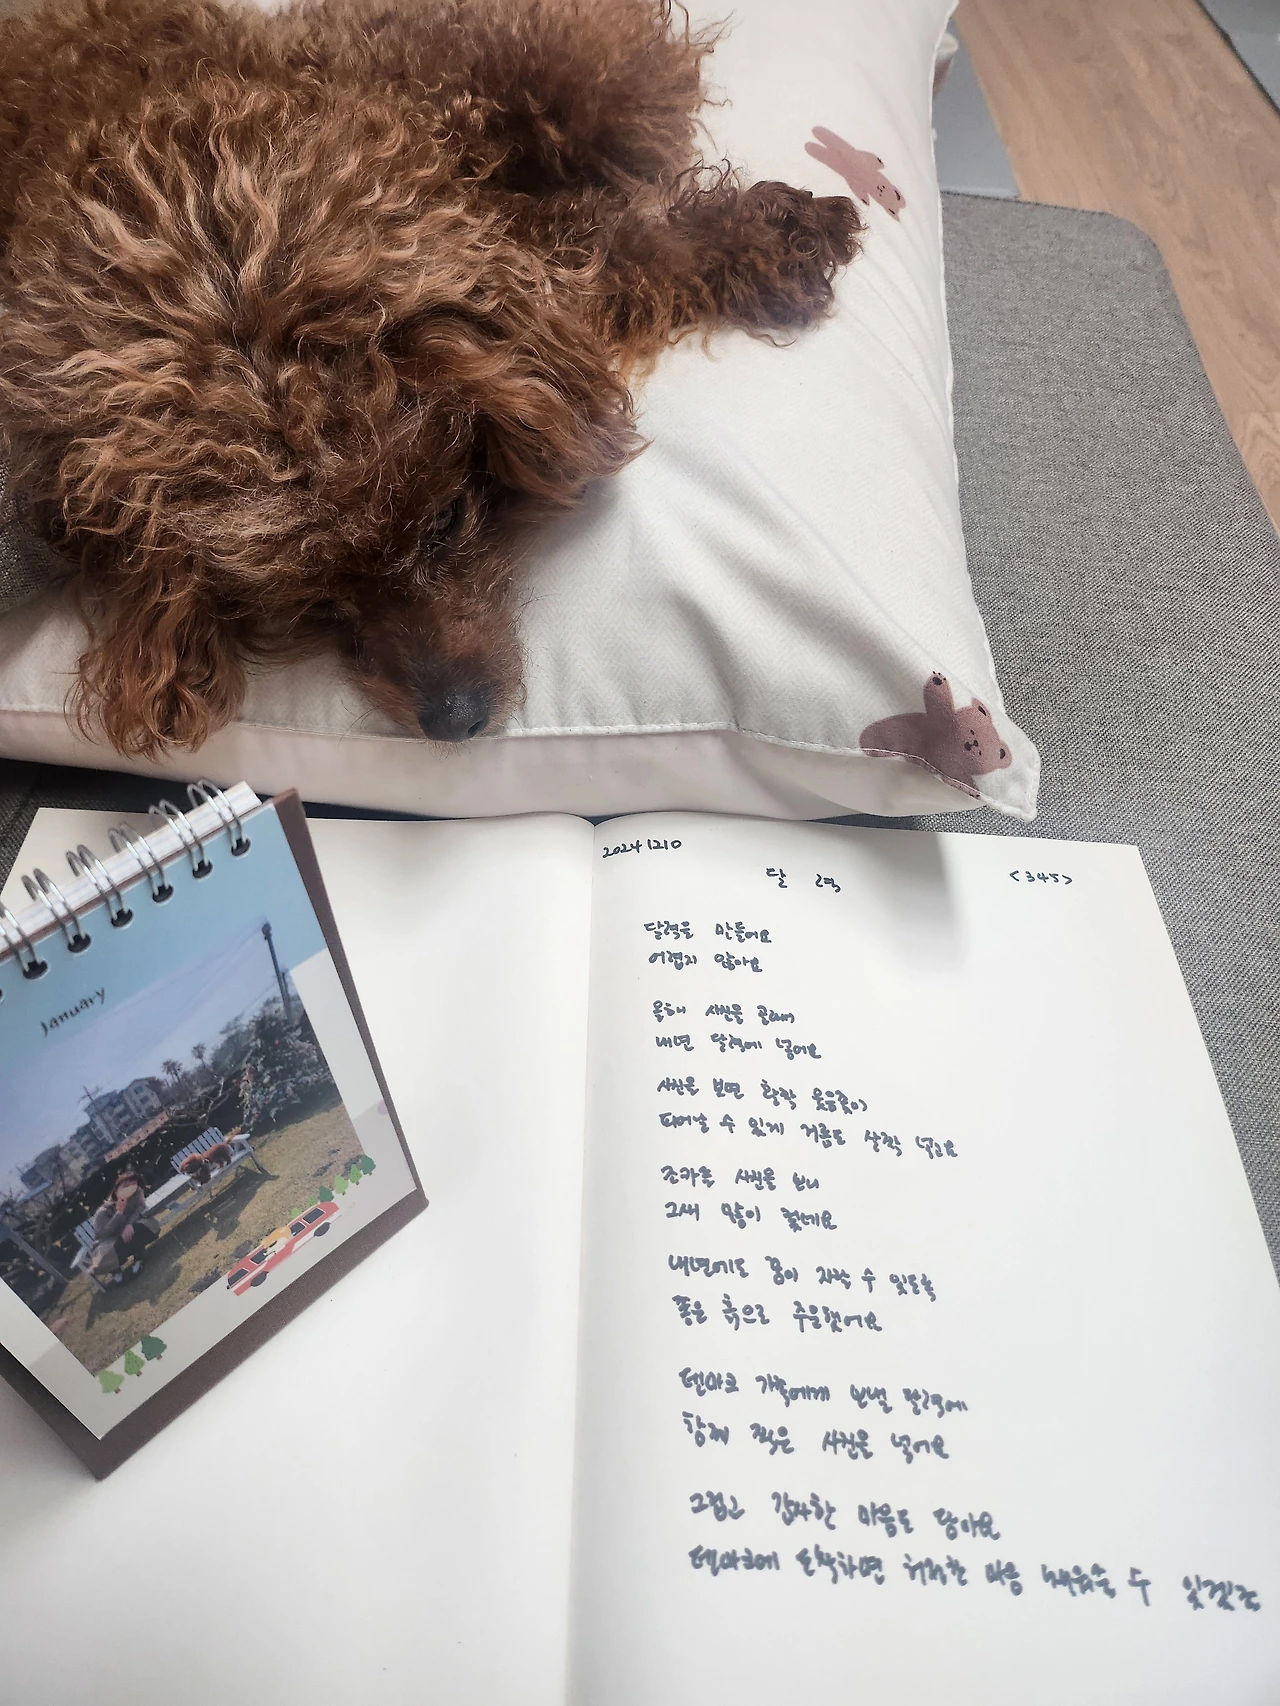 January
20241210
달 력 <345>
달력을 만들어요
어렵지 않아요
올해 사진을 골라서
내년 달력에 넣어요
사진을 보면 활짝 웃음꽃이
피어날 수 있게 거름도 살짝 넣고요
조카들 사진을 보니
그새 많이 컸네요
내년에도 꿈이 자랄 수 있도록
좋은 흙으로 주문했어요
덴마크 가족에게 보낼 달력에
함께 찍은 사진을 넣어요
그립고 감사한 마음도 담아요
덴마크에 도착하면 허전한 마음 채워줄 수 있겠죠